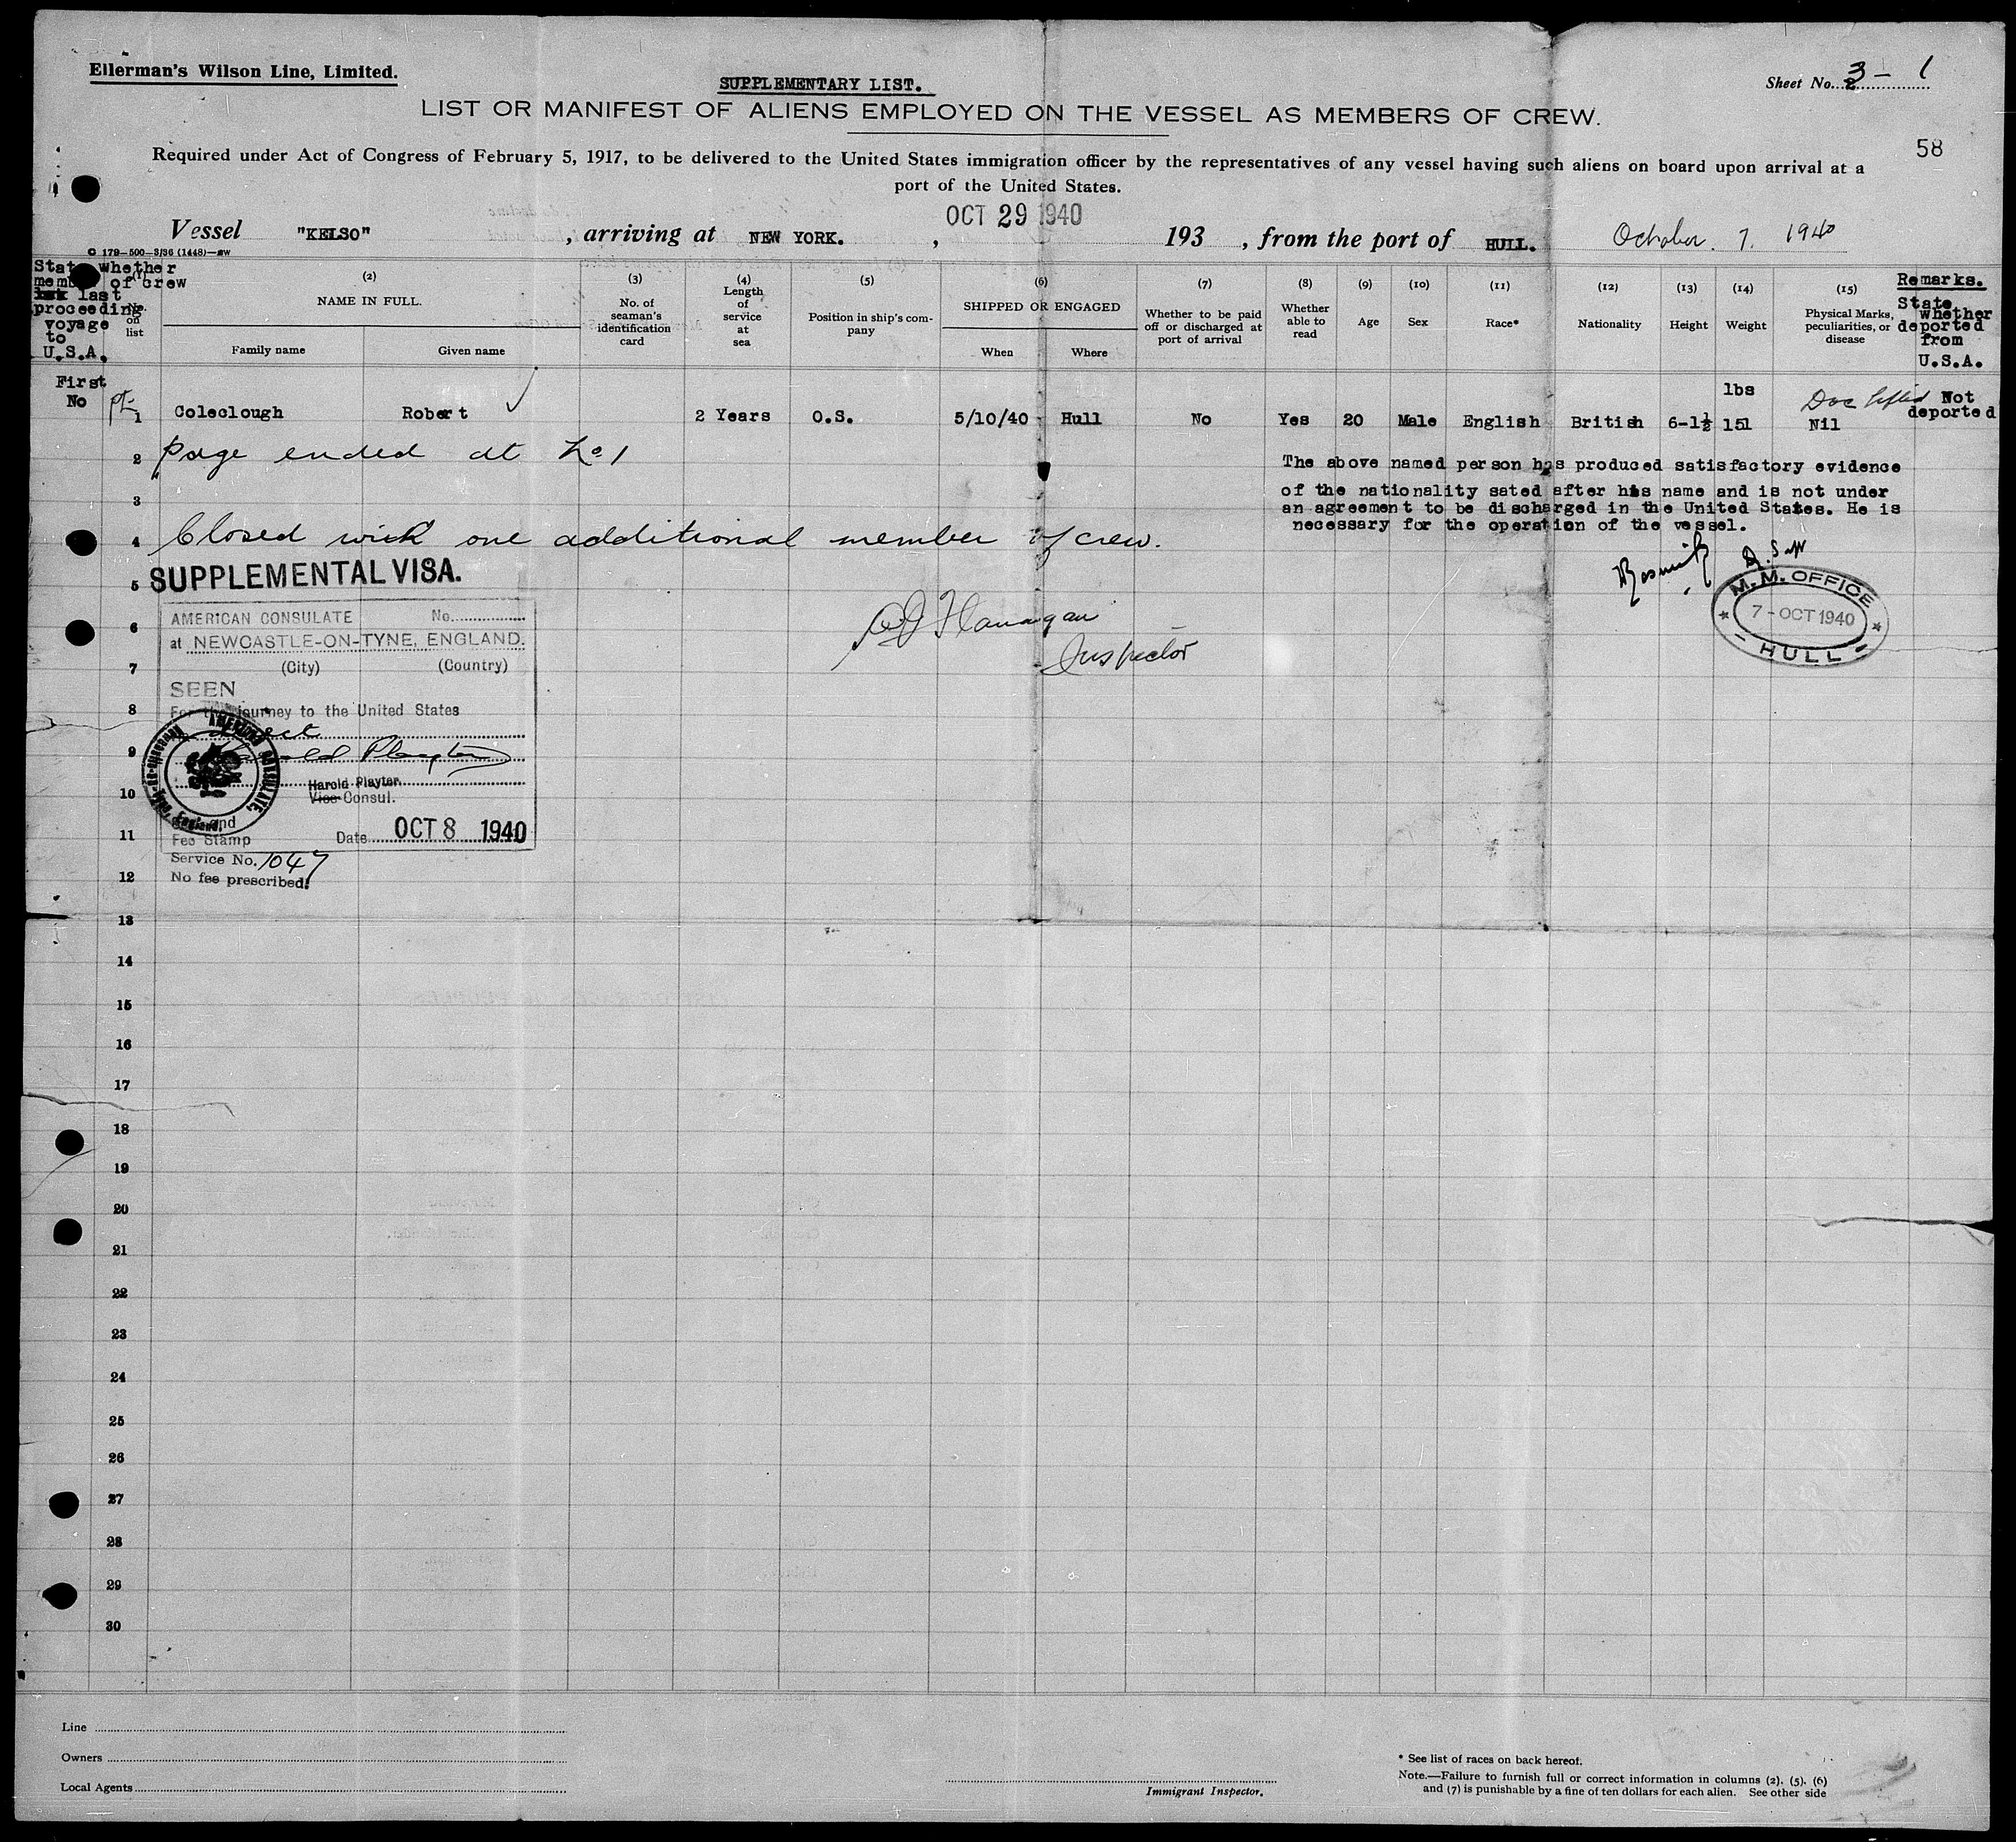 Ellerman's Wilson Line, Limited.
SUPPLEMENTARY LIST.
Sheet No. 3 - 1
LIST OR MANIFEST OF ALIENS EMPLOYED ON THE VESSEL AS MEMBERS OF CREW.
58
Required under Act of Congress of February 5, 1917, to be delivered to the United States immigration officer by the representatives of any vessel having such aliens on board upon arrival at a
port of the United States.
OCT 29 1940
Vessel "KELSO", arriving at NEW YORK. , 193 , from the port of HULL. October. 7. 1940
C 179-500-3/36 (1448)
State whether member of crew last proceeding voyage to U.S.A.
(1) No. on list
(2) NAME IN FULL.
Family name
Given name
(3) No. of seaman's identification card
(4) Length of service at sea
(5) Position in ship's company
(6) SHIPPED OR ENGAGED
When
Where
(7) Whether to be paid off or discharged at port of arrival
(8) Whether able to read
(9) Age
(10) Sex
(11) Race*
(12) Nationality
(13) Height
(14) Weight
(15) Physical Marks, peculiarities, or disease
Remarks. State whether deported from U.S.A.
First
No 1 Coleclough Robert 2 Years O.S. 5/10/40 Hull No Yes 20 Male English British 6-1½ lbs 151 Nil Not deported
2 Page ended at No 1
The above named person has produced satisfactory evidence
of the nationality sated after his name and is not under
3
an agreement to be discharged in the United States. He is
necessary for the operation of the vessel.
4 Closed with one additional member of crew.
5 SUPPLEMENTAL VISA.
M.M. OFFICE
7 - OCT 1940
- HULL -
AMERICAN CONSULATE No.
6
at NEWCASTLE-ON-TYNE, ENGLAND.
Flanagan
Inspector
7 (City) (Country)
SEEN
8 For the journey to the United States
9
Harold Playter
10 Vice Consul.
AMERICAN CONSULATE, Newcastle-on-Tyne, England.
11 Fee Stamp Date OCT 8 1940
Service No. 1047
12 No fee prescribed.
13
14
15
16
17
18
19
20
21
22
23
24
25
26
27
28
29
30
Line
Owners
Local Agents
Immigrant Inspector.
* See list of races on back hereof.
Note.—Failure to furnish full or correct information in columns (2), (5), (6)
and (7) is punishable by a fine of ten dollars for each alien. See other side